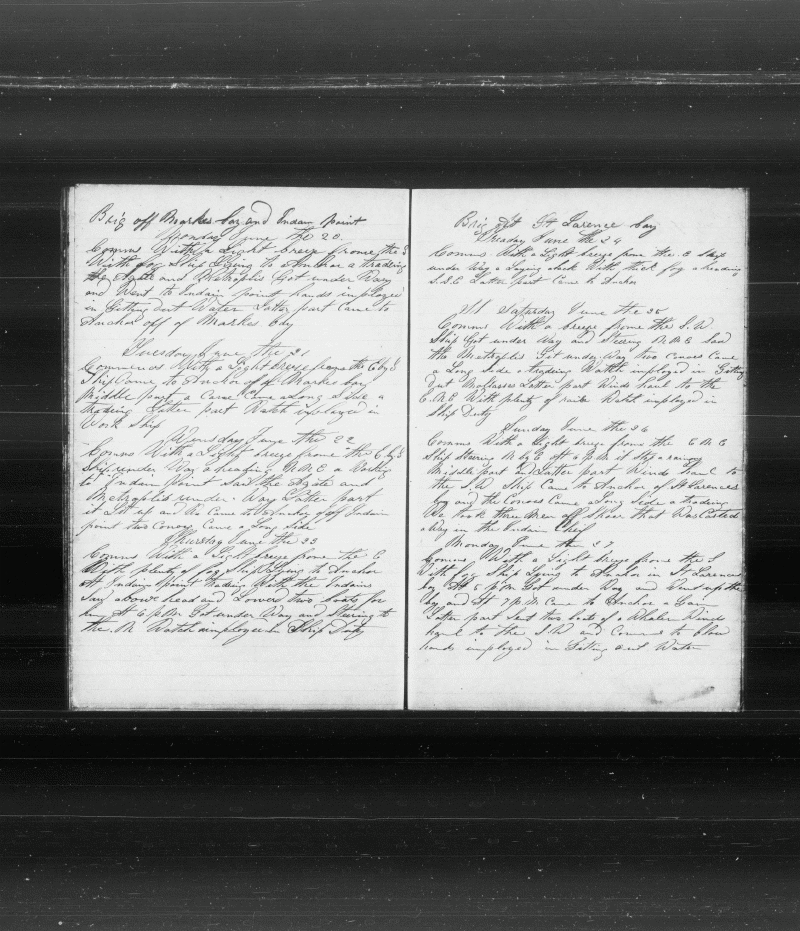 Brig off Markes bay and Indian point
Monday June the 20
Comms With a Light breze frome the S
With fog Ship Lying to Anchor a trading
the Agate and Metroplis Got under Way
and Went to Indain point hands imployed
in Gitting out Water Latter part Came to
Anchor off of Markes bay
Tuesday June the 21
Commences With a Light breze frome the E by S
Ship Came to Anchor off of Markes bay
Middle part a Canoe Came along Side a
trading Latter part Watch imployed in
Work Ship
Wensday June the 22
Comms With a Light breeze frome the E by S
Ship under Way a heading N.N.E a Working
to Indain Point Said the Agate and
Metroplis under Way Latter part
it and We Came to Anchor off Indain
point two Conoes Came a Long Side
Thursday June the 23
Comms With a Light breze frome the E
With plenty of fog Ship Lying to Anchor
At Indain Point trading With the Indains
Saw a bow head and Lowerd two boats for
him At 6 P.M. Got under Way and Steering to
the N Watch imployed in Ship Duty
Brig At St Larence bay
Friday June the 24
Comms With a Light breze frome the E Ship
under Way a Laying aback With thick fog a heading
S.S.E Latter part Came to Anchor
At Saturday June the 25
Comms With a breze frome the S.W
Ship Got under Way and Steering N.N.E Saw
the Metroplis Got under Way two Conoes Came
a Long Side a trading Watch imployed in Gitting
Out Mollasses Latter part Winds haul to the
E.N.E With plenty of rain Watch imployed in
Ship Duty
Sunday June the 26
Comms With a Light breze frome the E.N.E
Ship Steering N by E at 6 P.M. it Set a rainy
Middle part and Latter part Winds haul to
the S.W Ship Came to Anchor of St Larences
bay and the Conoes Came a Long Side a trading
We took three Men of Shoar that Was Casted
a Way in the Indain Cheif
Monday June the 27
Comms With a Light breze frome the S
With fog Ship Lying to Anchor in St Larences
bay At 5 P.M. Got under Way and Went up the
bay and At 7 P.M. Came to Anchor a Gain
Latter part Sent two boats of a Whalen Winds
haul to the S.W and Comms to blow
hands imployed in Gitting out Water